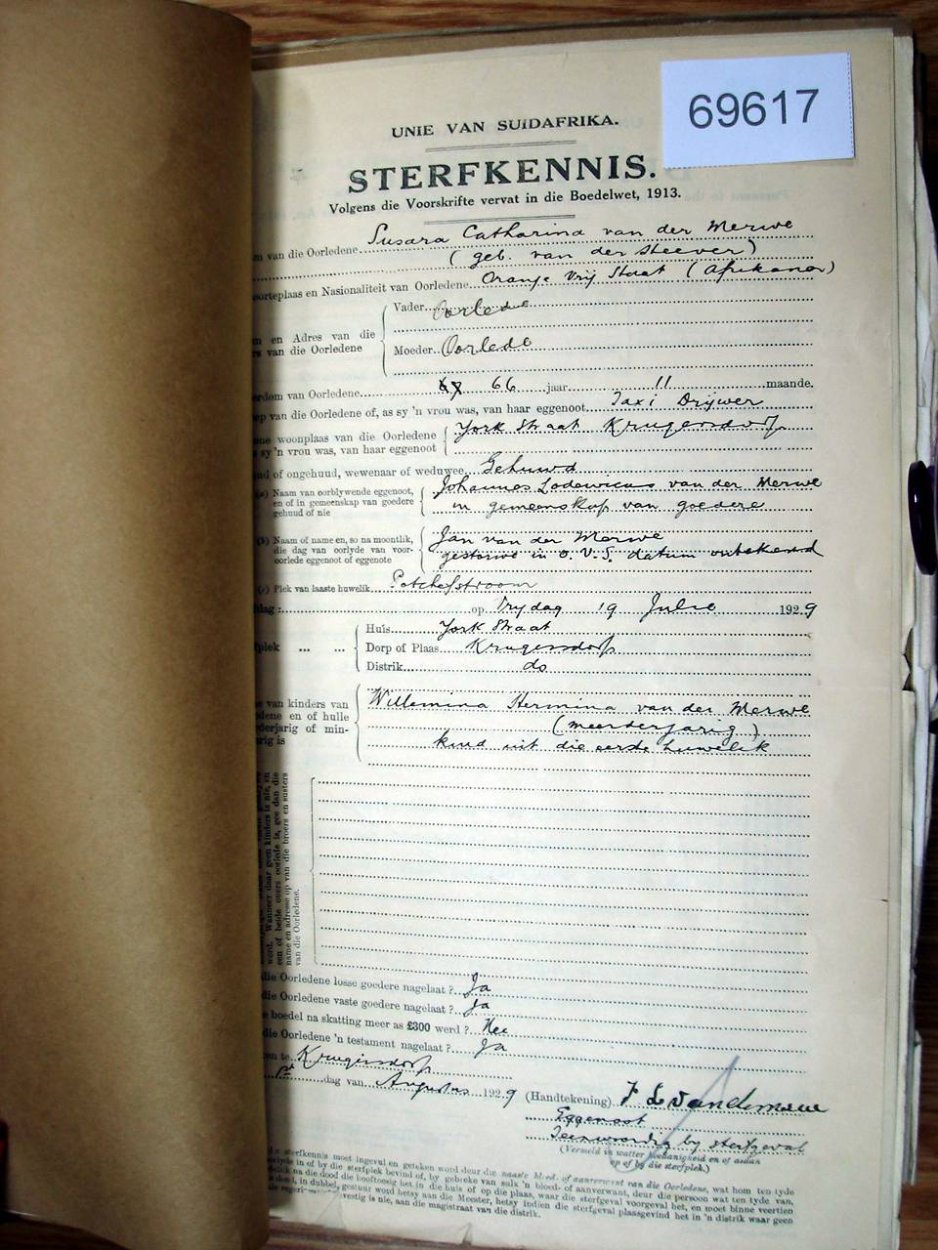 69617
UNIE VAN SUIDAFRIKA.
STERFKENNIS.
Volgens die Voorskrifte vervat in die Boedelwet, 1913.
van die Oorledene Susara Catharina van der Merwe
(geb. van der Steever)
en Nasionaliteit van Oorledene Oranje Vrij Staat (Afrikaner)
en Adres van die
van die Oorledene
Vader Oorlede
Moeder Oorlede
van Oorledene 66 jaar 11 maande.
van die Oorledene of, as sy 'n vrou was, van haar eggenoot Taxi Drijwer
woonplaas van die Oorledene
sy 'n vrou was, van haar eggenoot
York Straat Krugersdorp
of ongehuud, wewenaar of weduwee Gehuwd
(a) Naam van oorblywende eggenoot,
en of in gemeenskap van goedere
gehuud of nie
Johannes Lodewicus van der Merwe
in gemeenskap van goedere
(b) Naam of name en, so na moontlik,
die dag van oorlyde van voor-
oorlede eggenoot of eggenote
Jan van der Merwe
gestorwe in O.V.S. datum onbekend
(c) Plek van laaste huwelik Potchefstroom
op Vrydag 19 Julie 1929
Huis York Straat
Dorp of Plaas Krugersdorp
Distrik do
van kinders van
en of hulle
of min-
is
Willemina Hermina van der Merwe
(meerderjarig)
kind uit die eerste huwelik
name en adresse op van die broers en susters
van die Oorledene.
die Oorledene losse goedere nagelaat? Ja
die Oorledene vaste goedere nagelaat? Ja
boedel na skatting meer as £300 werd? Nee
die Oorledene 'n testament nagelaat? Ja
te Krugersdorp
dag van Augustus 1929
(Handtekening) J L vandmerwe
Eggenoot
Teenwoordig by sterfgeval
(Vermeld in watter hoedanigheid en of aldan
op of by die sterfplek.)
sterfkennis moet ingevul en geteken word deur die naaste bloed- of aanverwant van die Oorledene, wat hom ten tyde
in of by die sterfplek bevind of, by gebreke van sulk 'n bloed- of aanverwant, deur die persoon wat ten tyde van,
na die dood die hooftoesig het in die huis of op die plaas, waar die sterfgeval voorgeval het, en moet binne veertien
in dubbel, gestuur word hetsy aan die Meester, hetsy indien die sterfgeval plaasgevind het in 'n distrik waar geen
gevestig is nie, aan die magistraat van die distrik.